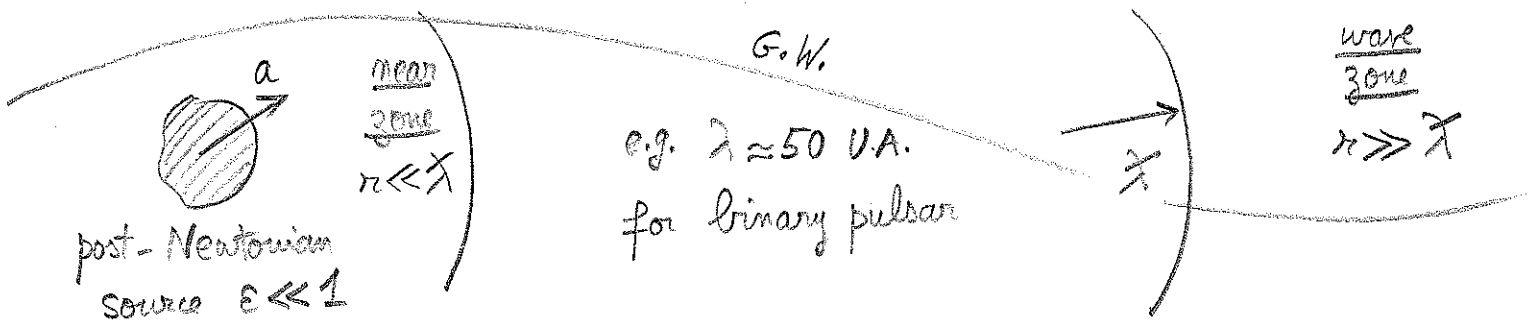 a
near
zone
r ≪ ƛ
post-Newtonian
source ε ≪ 1
G.W.
e.g. λ ≈ 50 U.A.
for binary pulsar
ƛ
wave
zone
r ≫ ƛ